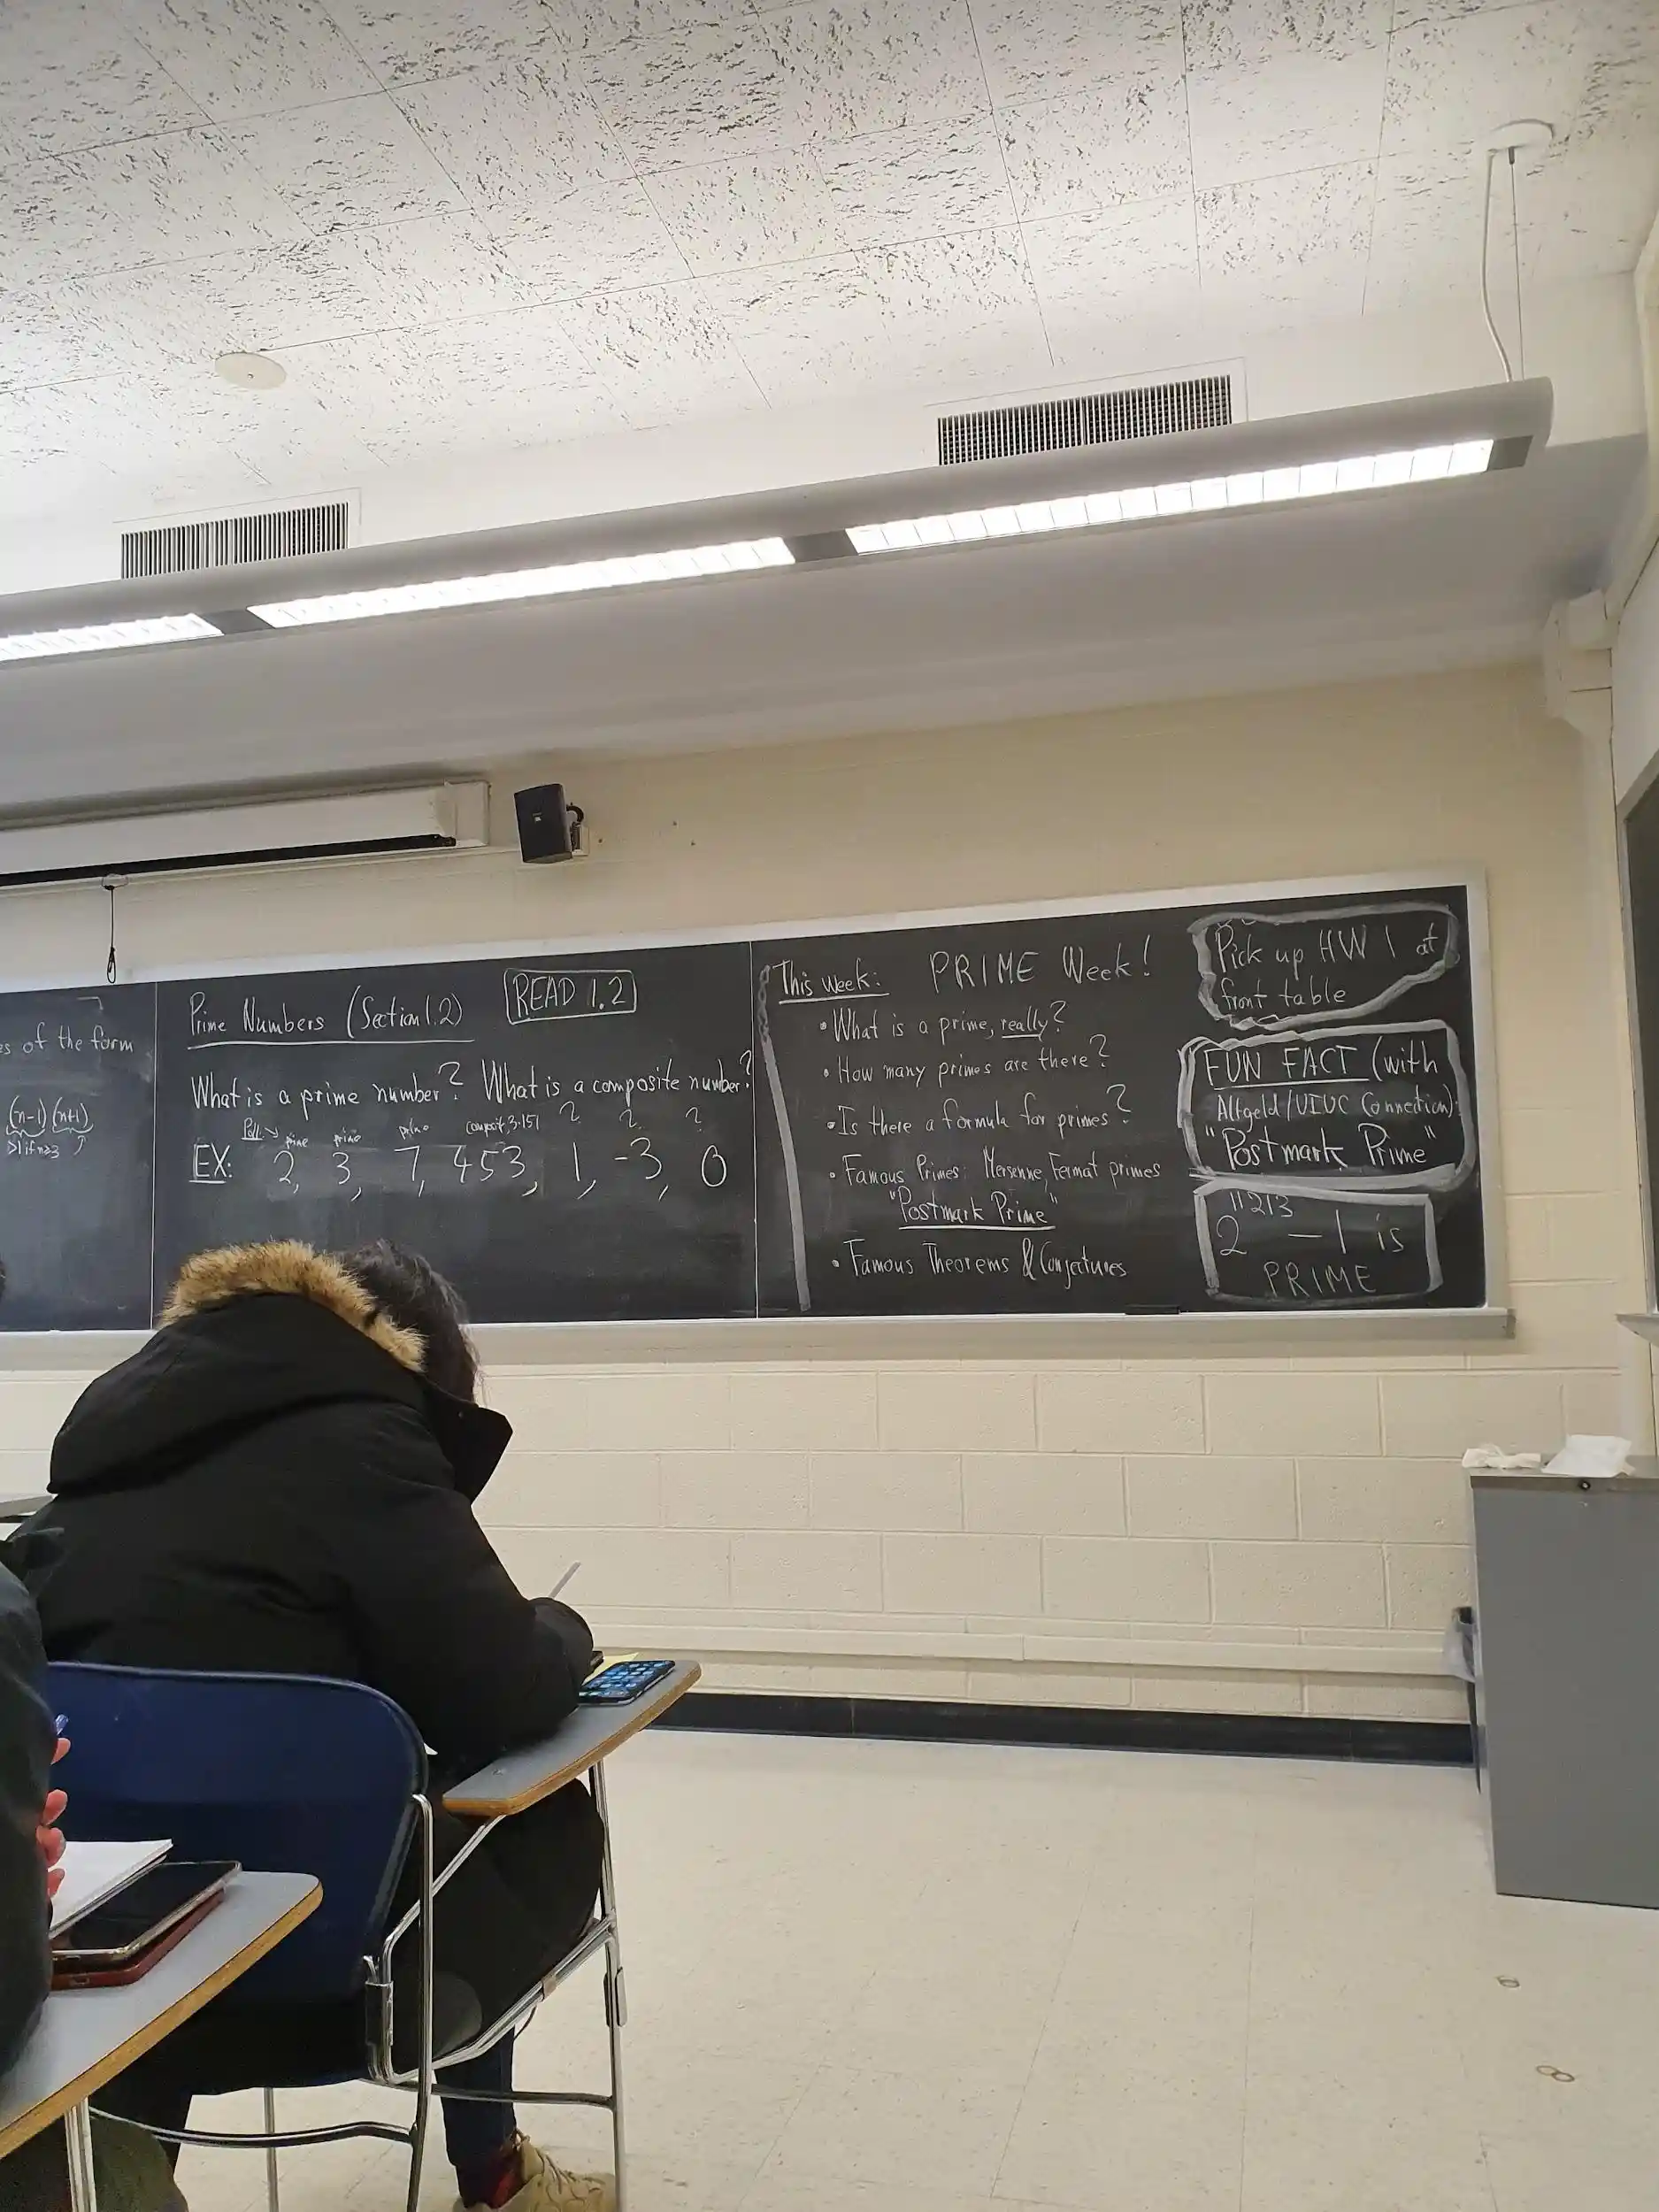 es of the form
(n-1)(n+1)
>1 if n≥3
Prime Numbers (Section 1.2)
READ 1.2
What is a prime number? What is a composite number?
Poll: prime prime prime composite, 3·151 ? ? ?
EX: 2, 3, 7, 453, 1, -3, 0
This week: PRIME Week!
• What is a prime, really?
• How many primes are there?
• Is there a formula for primes?
• Famous Primes: Mersenne, Fermat primes
"Postmark Prime"
• Famous Theorems & Conjectures
Pick up HW 1 at
front table
FUN FACT (with
Altgeld/UIUC Connection):
"Postmark Prime"
2^11213 - 1 is
PRIME